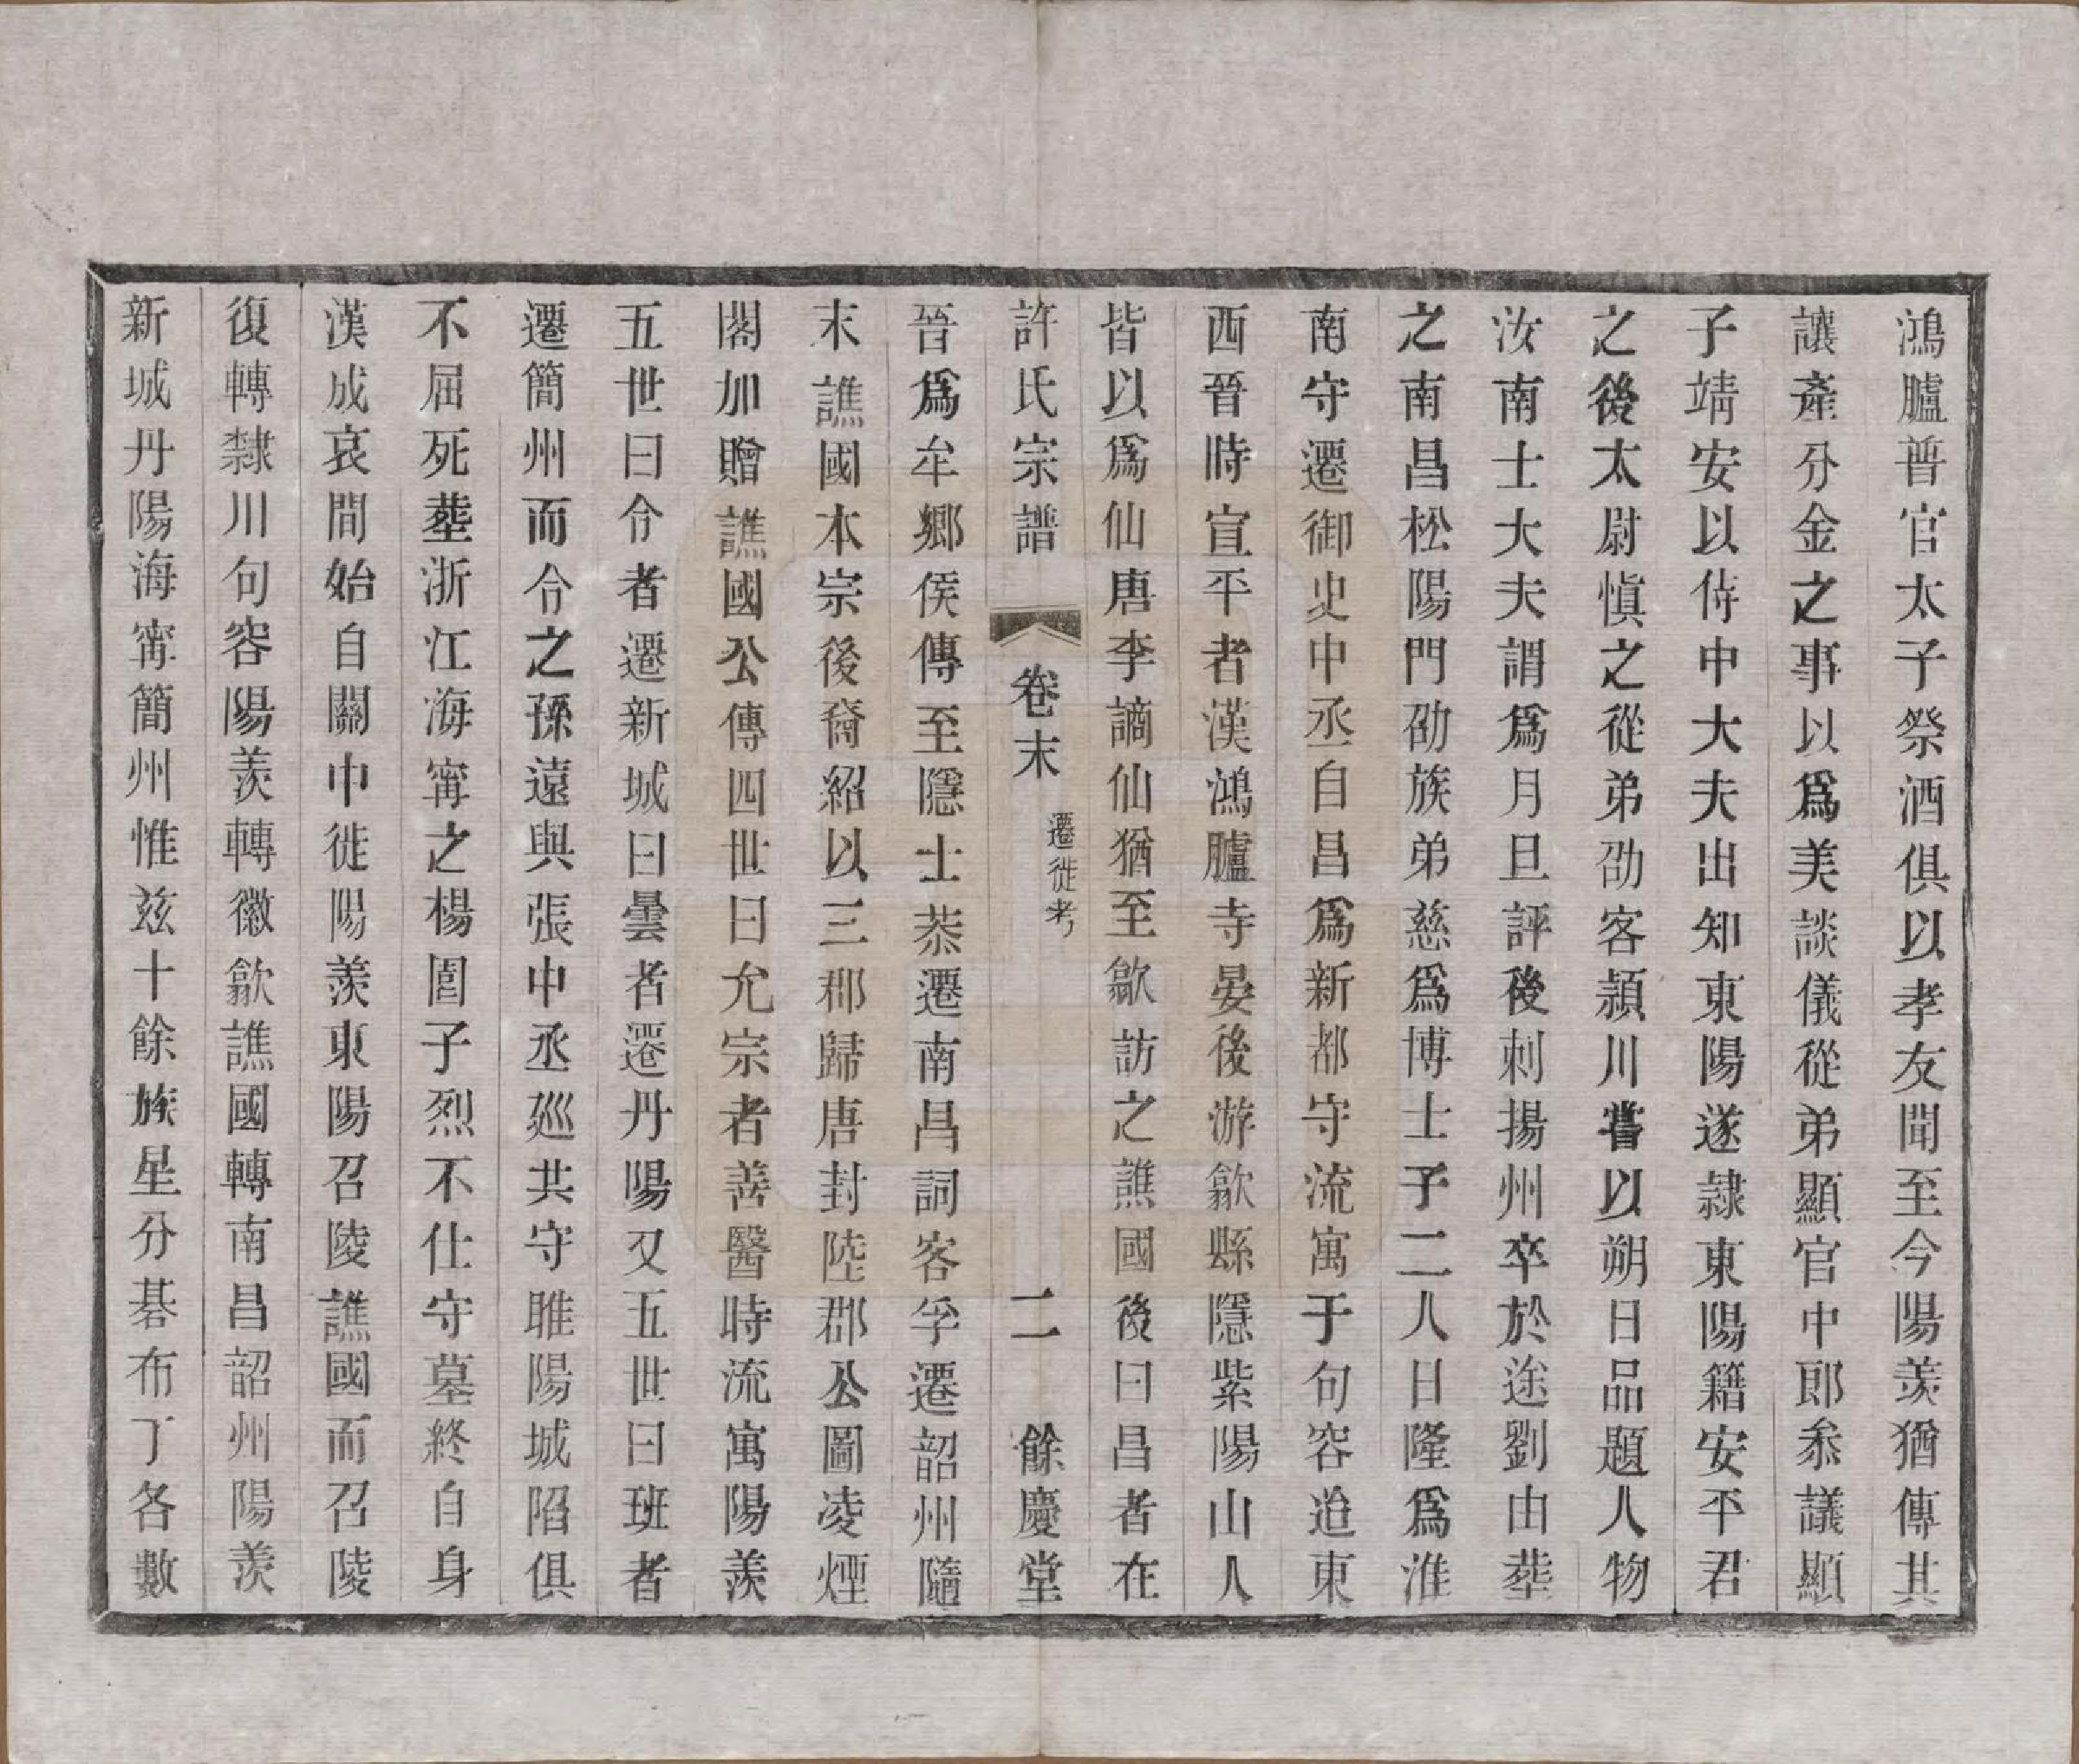 鴻臚普官太子祭酒俱以孝友聞至今陽羨猶傳其
讓產分金之事以爲美談儀從弟顯官中郎叅議顯
子靖安以侍中大夫出知東陽遂隷東陽籍安平君
之後太尉愼之從弟劭客頴川嘗以朔日品題人物
汝南士大夫謂爲月旦評後刺揚州卒於途劉由塟
之南昌松陽門劭族弟慈爲博士子二人曰隆爲淮
南守遷御史中丞曰昌爲新都守流寓于句容迨東
西晉時宣平者漢鴻臚寺晏後游歙縣隱紫陽山人
皆以爲仙唐李謫仙猶至歙訪之譙國後曰昌者在
許氏宗譜 卷末 遷徙考 二 餘慶堂
晉爲牟鄉侯傳至隱士㳟遷南昌詞客孚遷韶州隨
末譙國本宗後裔紹以三郡歸唐封陸郡公圖凌煙
閣加贈譙國公傳四世曰允宗者善醫時流寓陽羨
五世曰令者遷新城曰曇者遷丹陽又五世曰班者
遷簡州而令之孫遠與張中丞廵共守睢陽城陷俱
不屈死塟浙江海寗之楊園子烈不仕守墓終自身
漢成哀間始自關中徙陽羨東陽召陵譙國而召陵
復轉隸川句容陽羨轉徽歙譙國轉南昌韶州陽羨
新城丹陽海寗簡州惟玆十餘族星分碁布丁各數